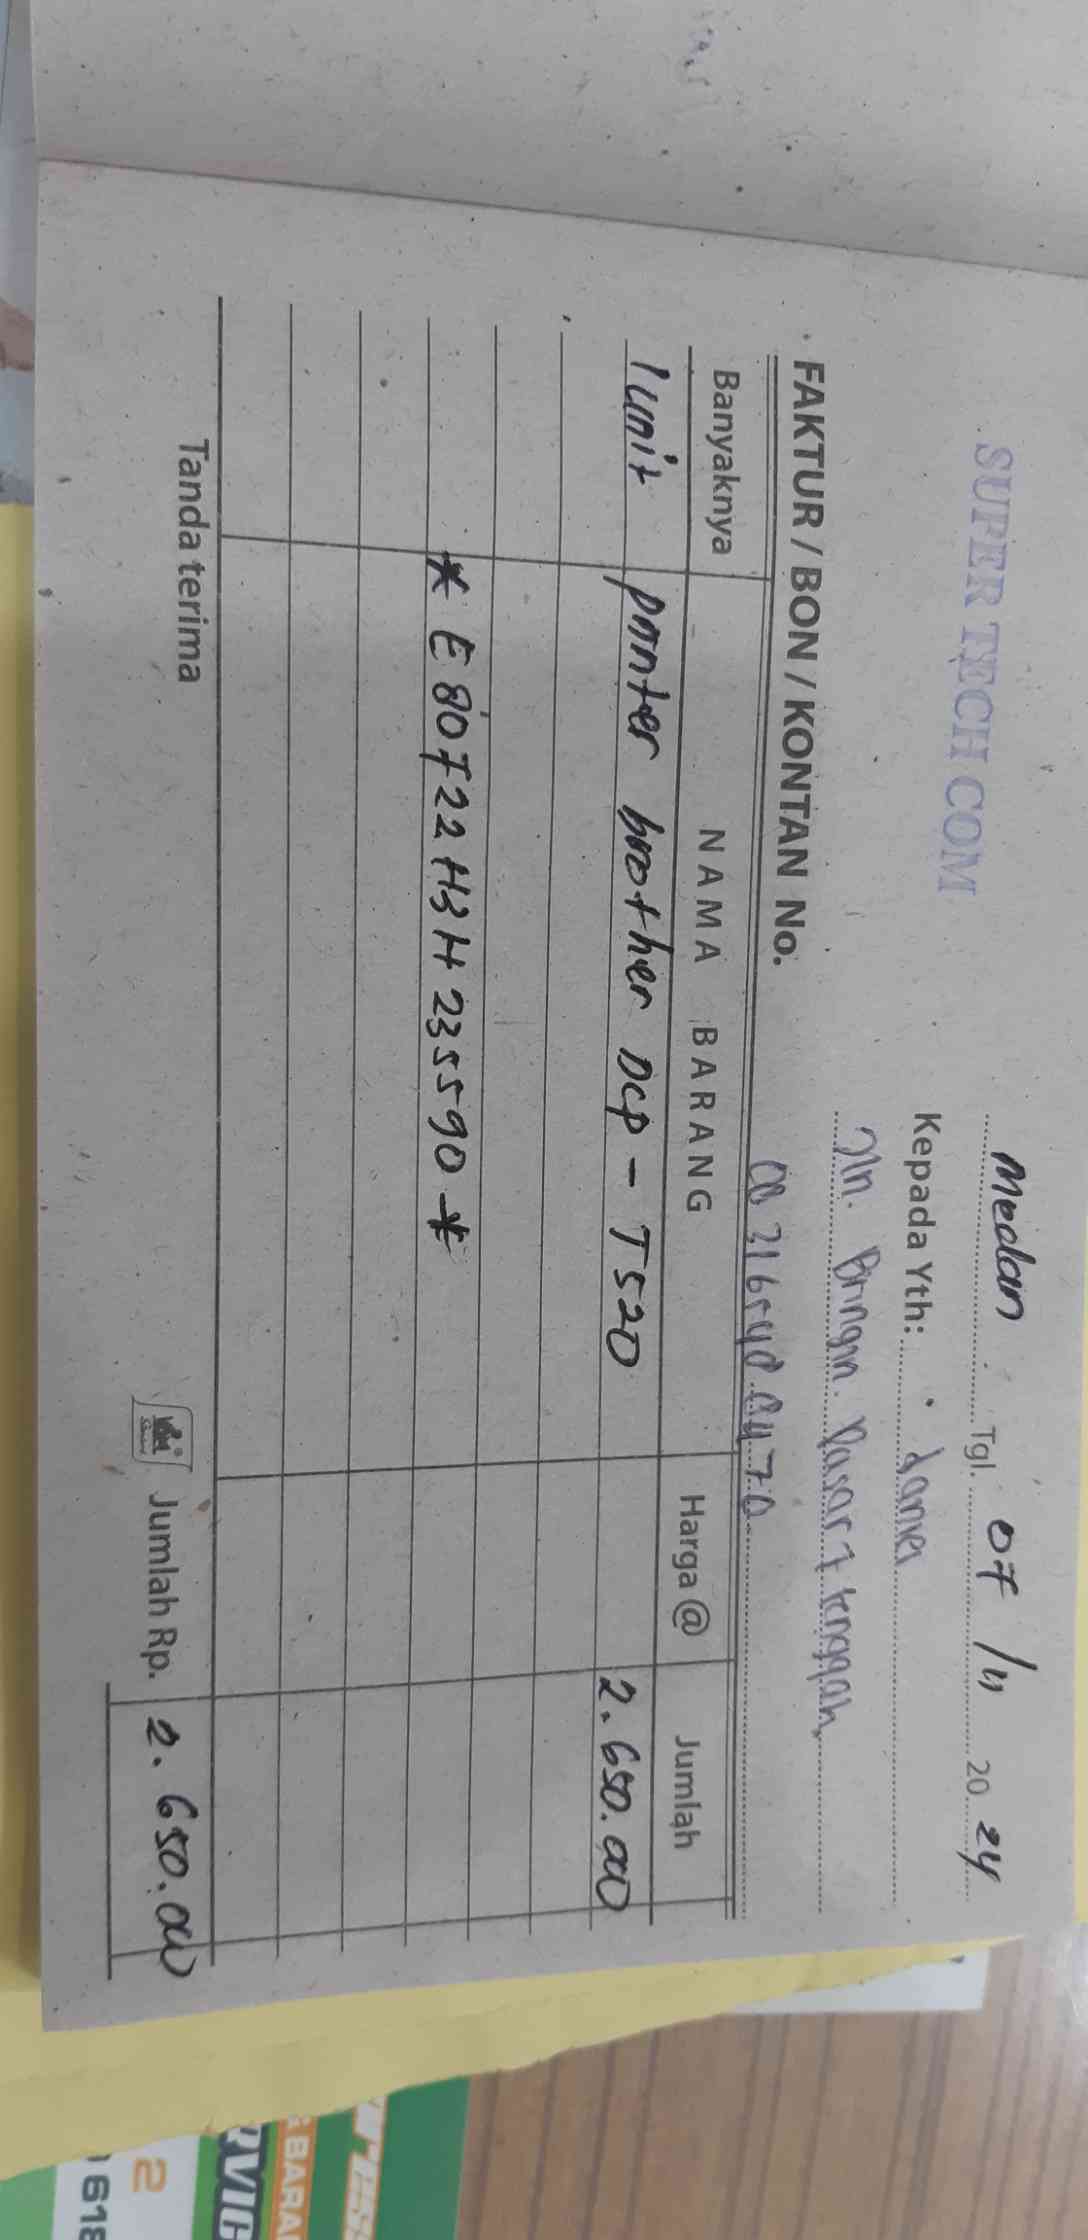 SUPER TECH COM
Medan Tgl. 07 / 11 20 24
Kepada Yth: Daniel
Jln. Bringin Pasar 7 tenggah
FAKTUR / BON / KONTAN No.
Banyaknya NAMA BARANG Harga @ Jumlah
1 unit printer brother DCP - T520 2.650.000
* E80722H3H235590 *
Tanda terima
Jumlah Rp. 2.650.000
2
618